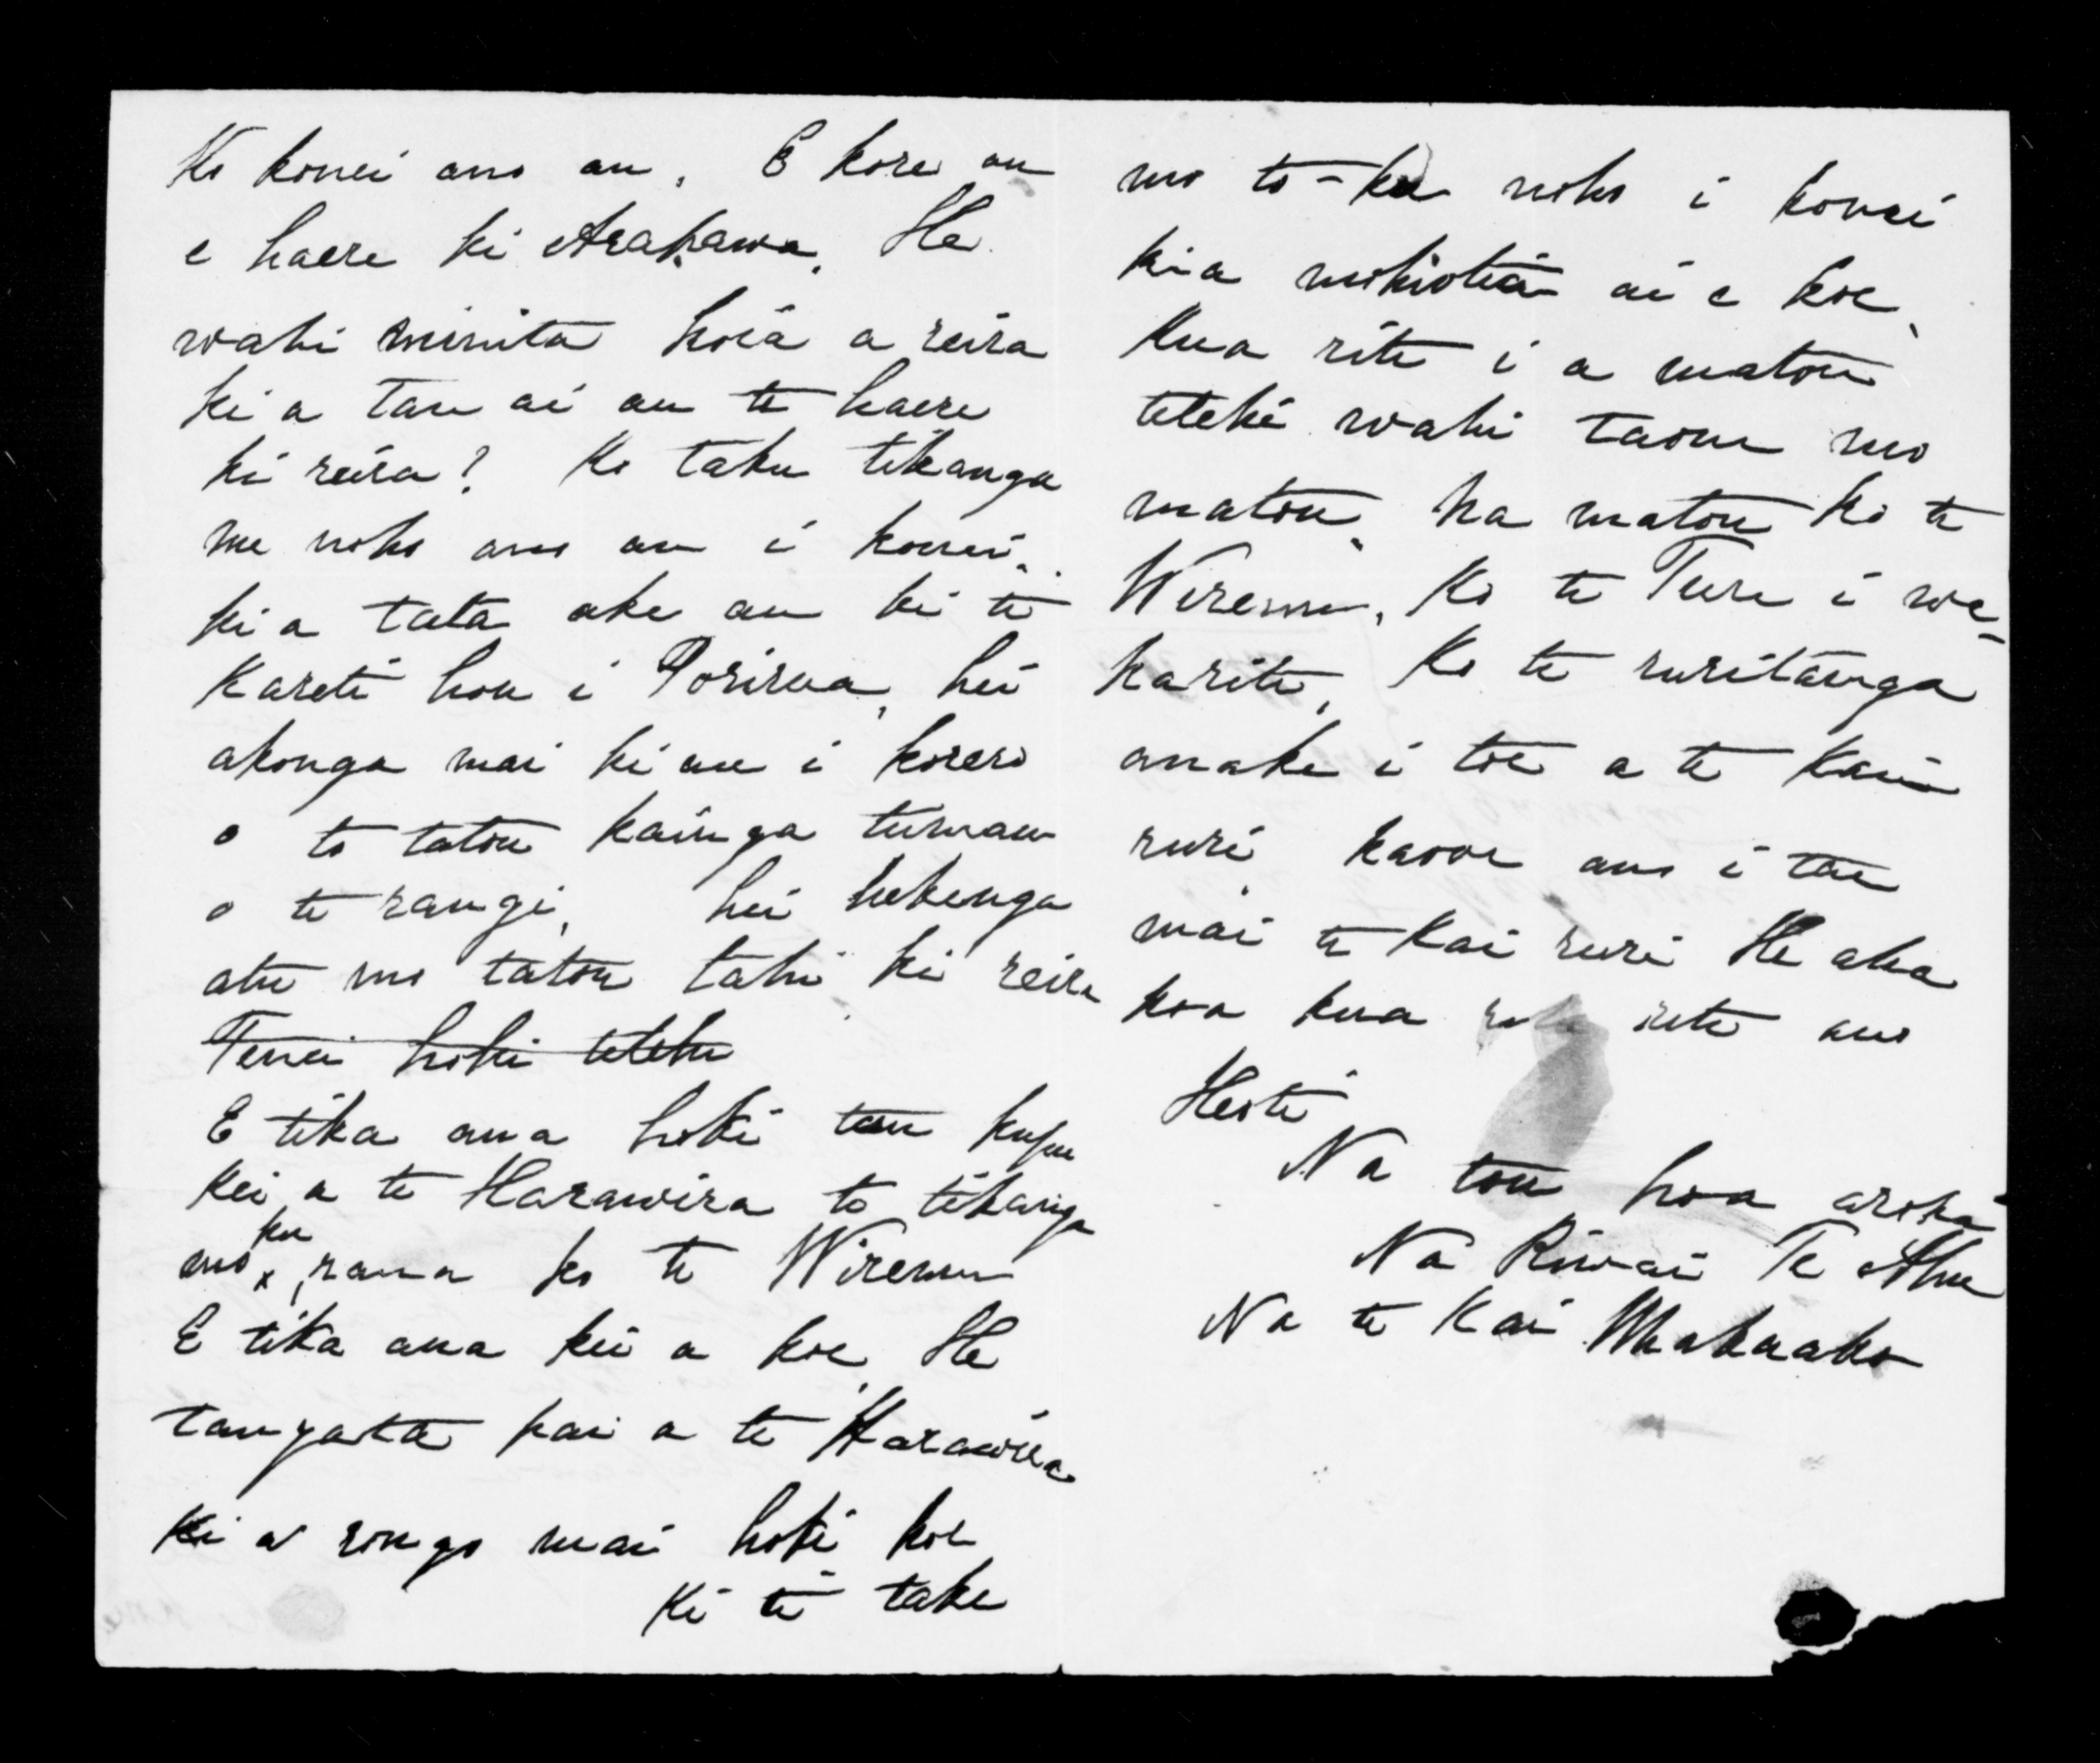 Ko konei ano au, E kore au
e haere ki Arahawa, He
wahi minita koia a reira
ki a tau ai au te haere
ki reira? Ko taku tikanga
me noho ano au i konei,
ki a tata ake au ki te
Kareti hou i Porirua, hei
akonga mai ki au i korero
o to tatou kainga tuturu
o te rangi, hei hekenga
atu mo tatou tahi ki reira
Tenei hoki tetehi
E tika ana hoki tau kupu
kei a te Harawira to tikanga
mo ku, rana ko te Wiremu
E tika ana kei a koe, He
tangata kai a te Harawira
Ki a rongo mai hoki koe
Ki te take
mo to-ku noho i konei
kia mohiotia ai e koe,
Kua rite i a matou
tetehi wahi taone mo
matou, ha matou ko te
Wiremu, Ko te Ture i we-
karite, Ko te ruritanga
anake i toe a te Kai
ruri, kaore ano i tae
mai te Kai ruri He aha
koa kua rite ano
Heoti
Na tou hoa aroha
Na Riwai Te Ahu
Na te Kai Whakaako